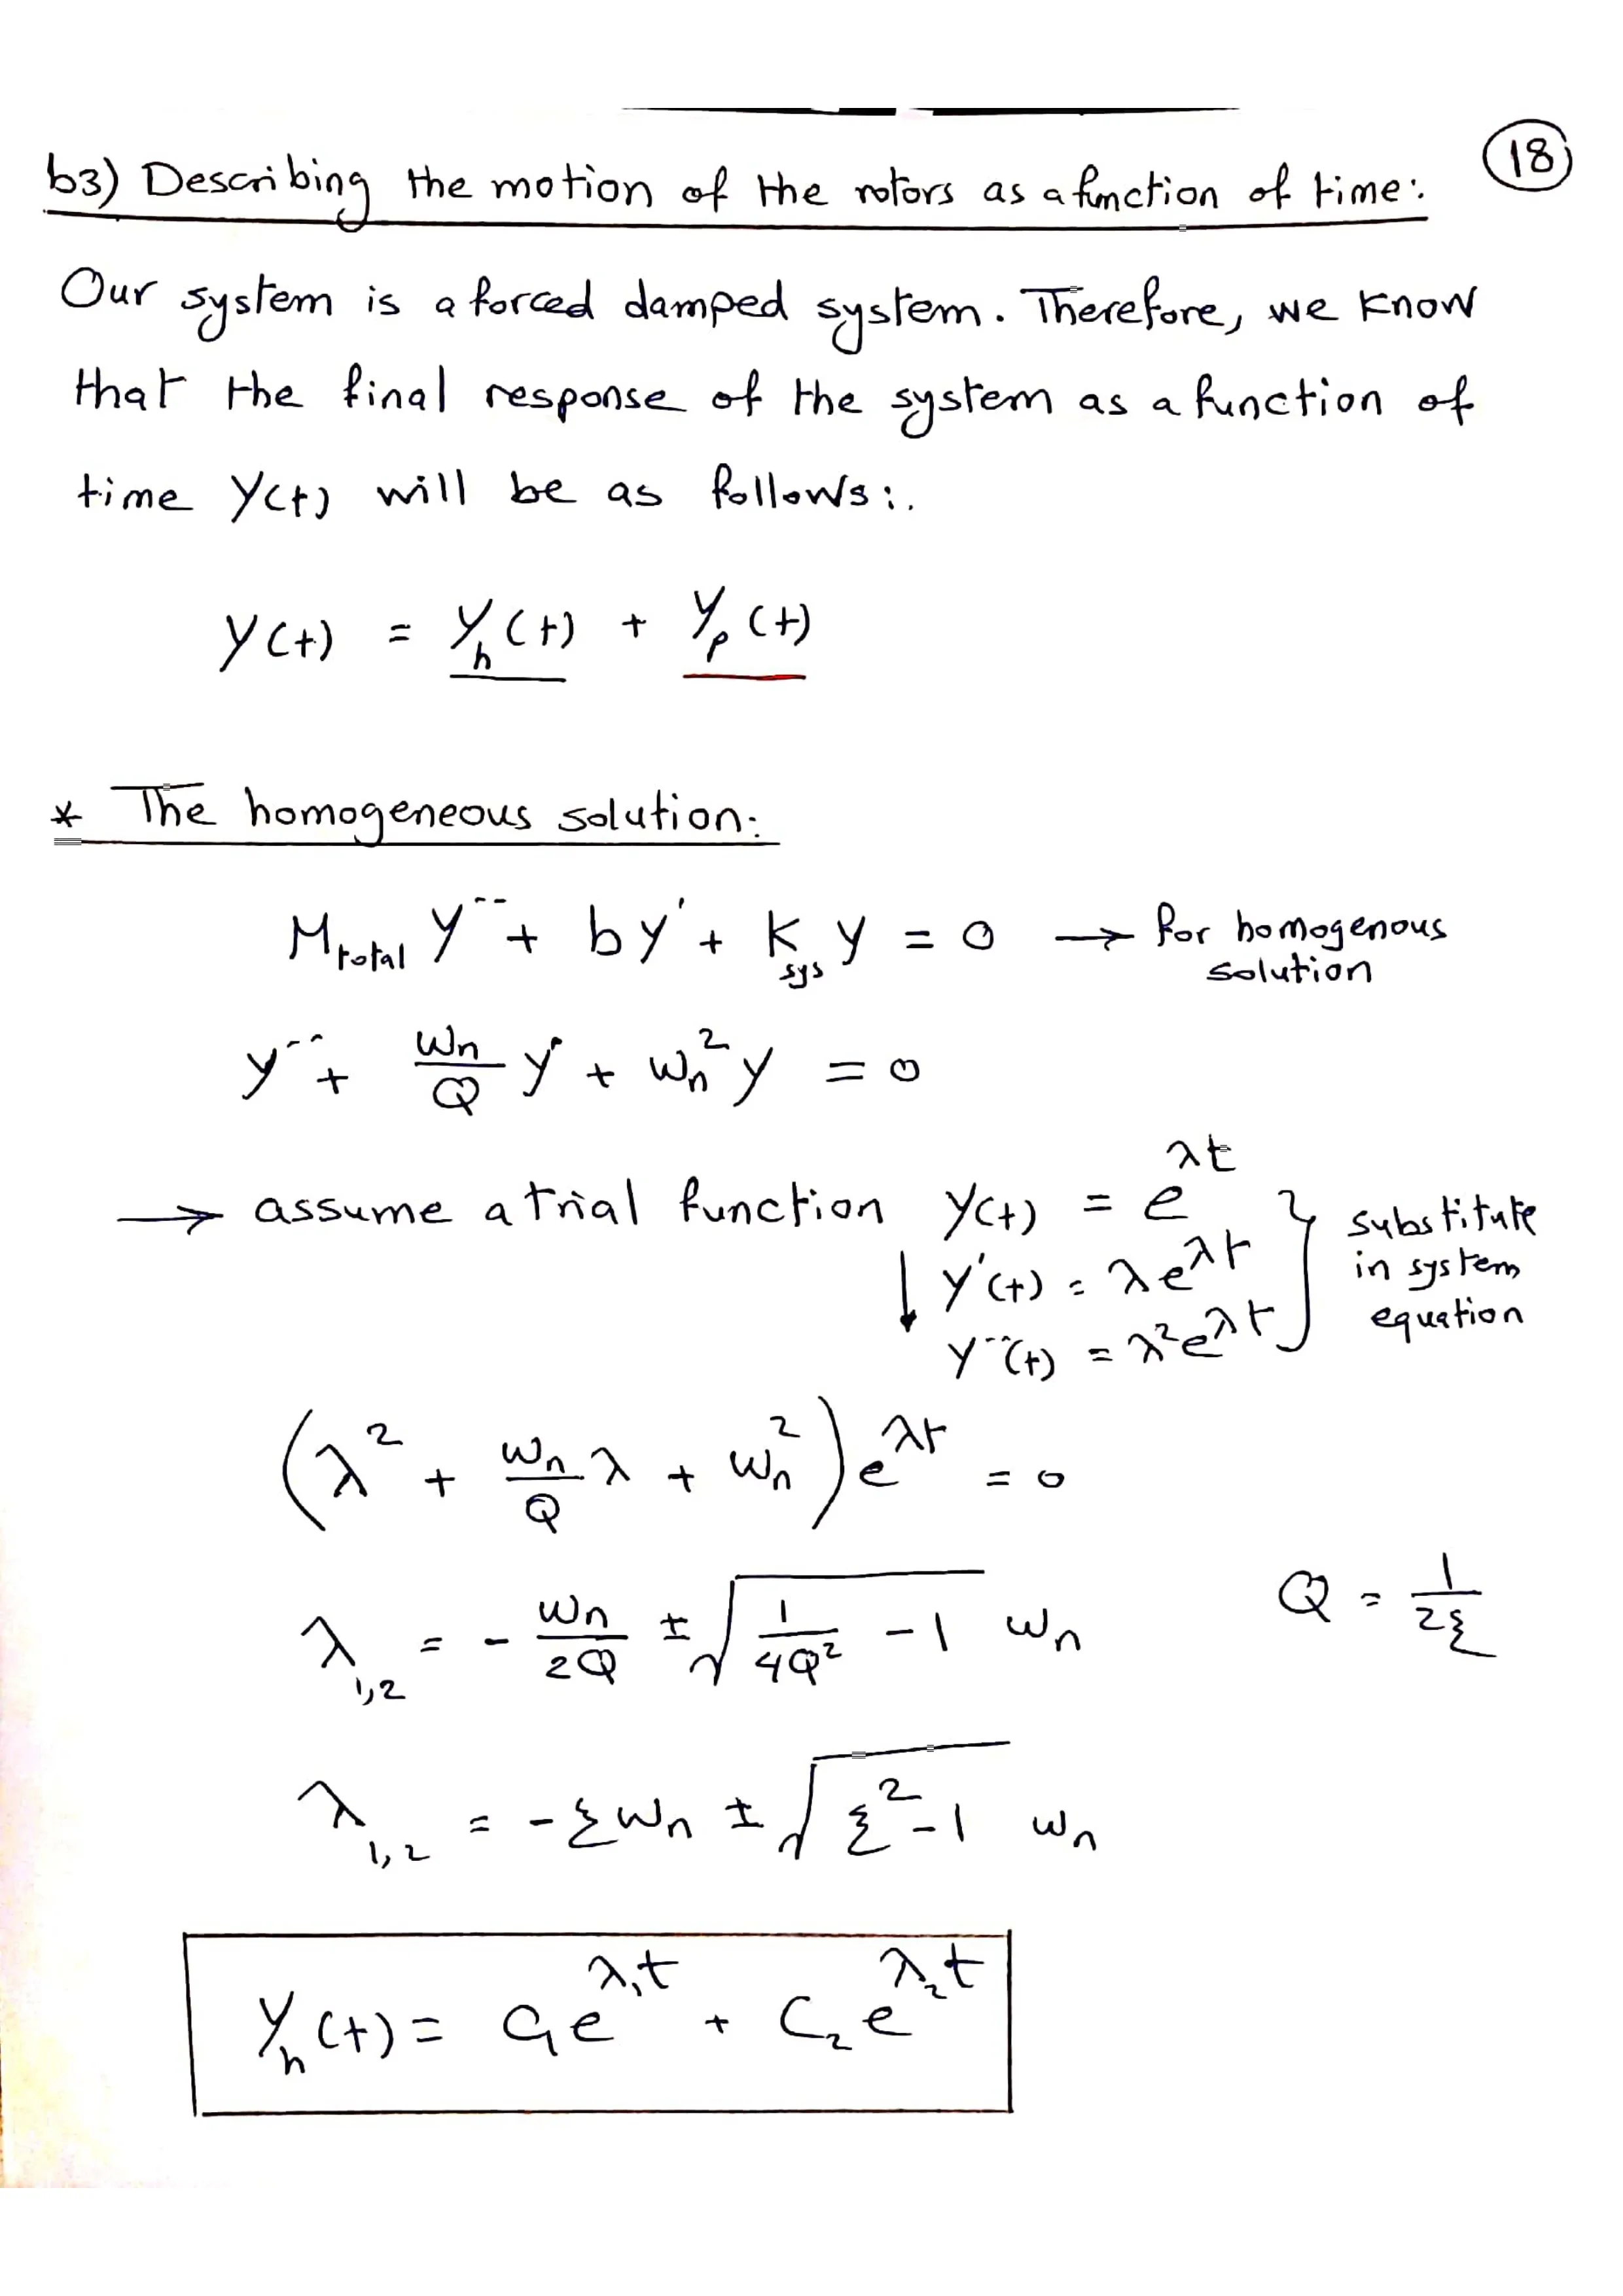 18
b3) Describing the motion of the rotors as a function of time:
Our system is a forced damped system. Therefore, we know
that the final response of the system as a function of
time y(t) will be as follows:.
y(t) = y_h(t) + y_p(t)
* The homogeneous solution:
M_total y¨ + by˙ + K_sys y = 0 → for homogenous
solution
y¨ + ωn/Q y˙ + ωn² y = 0
→ assume a trial function y(t) = e^λt } substitute
↓ y˙(t) = λe^λt in system
y¨(t) = λ²e^λt equation
(λ² + ωn/Q λ + ωn²) e^λt = 0
λ1,2 = - ωn/2Q ± √(1/4Q² - 1) ωn Q = 1/2ξ
λ1,2 = -ξωn ± √(ξ² - 1) ωn
y_h(t) = C₁e^λ₁t + C₂e^λ₂t